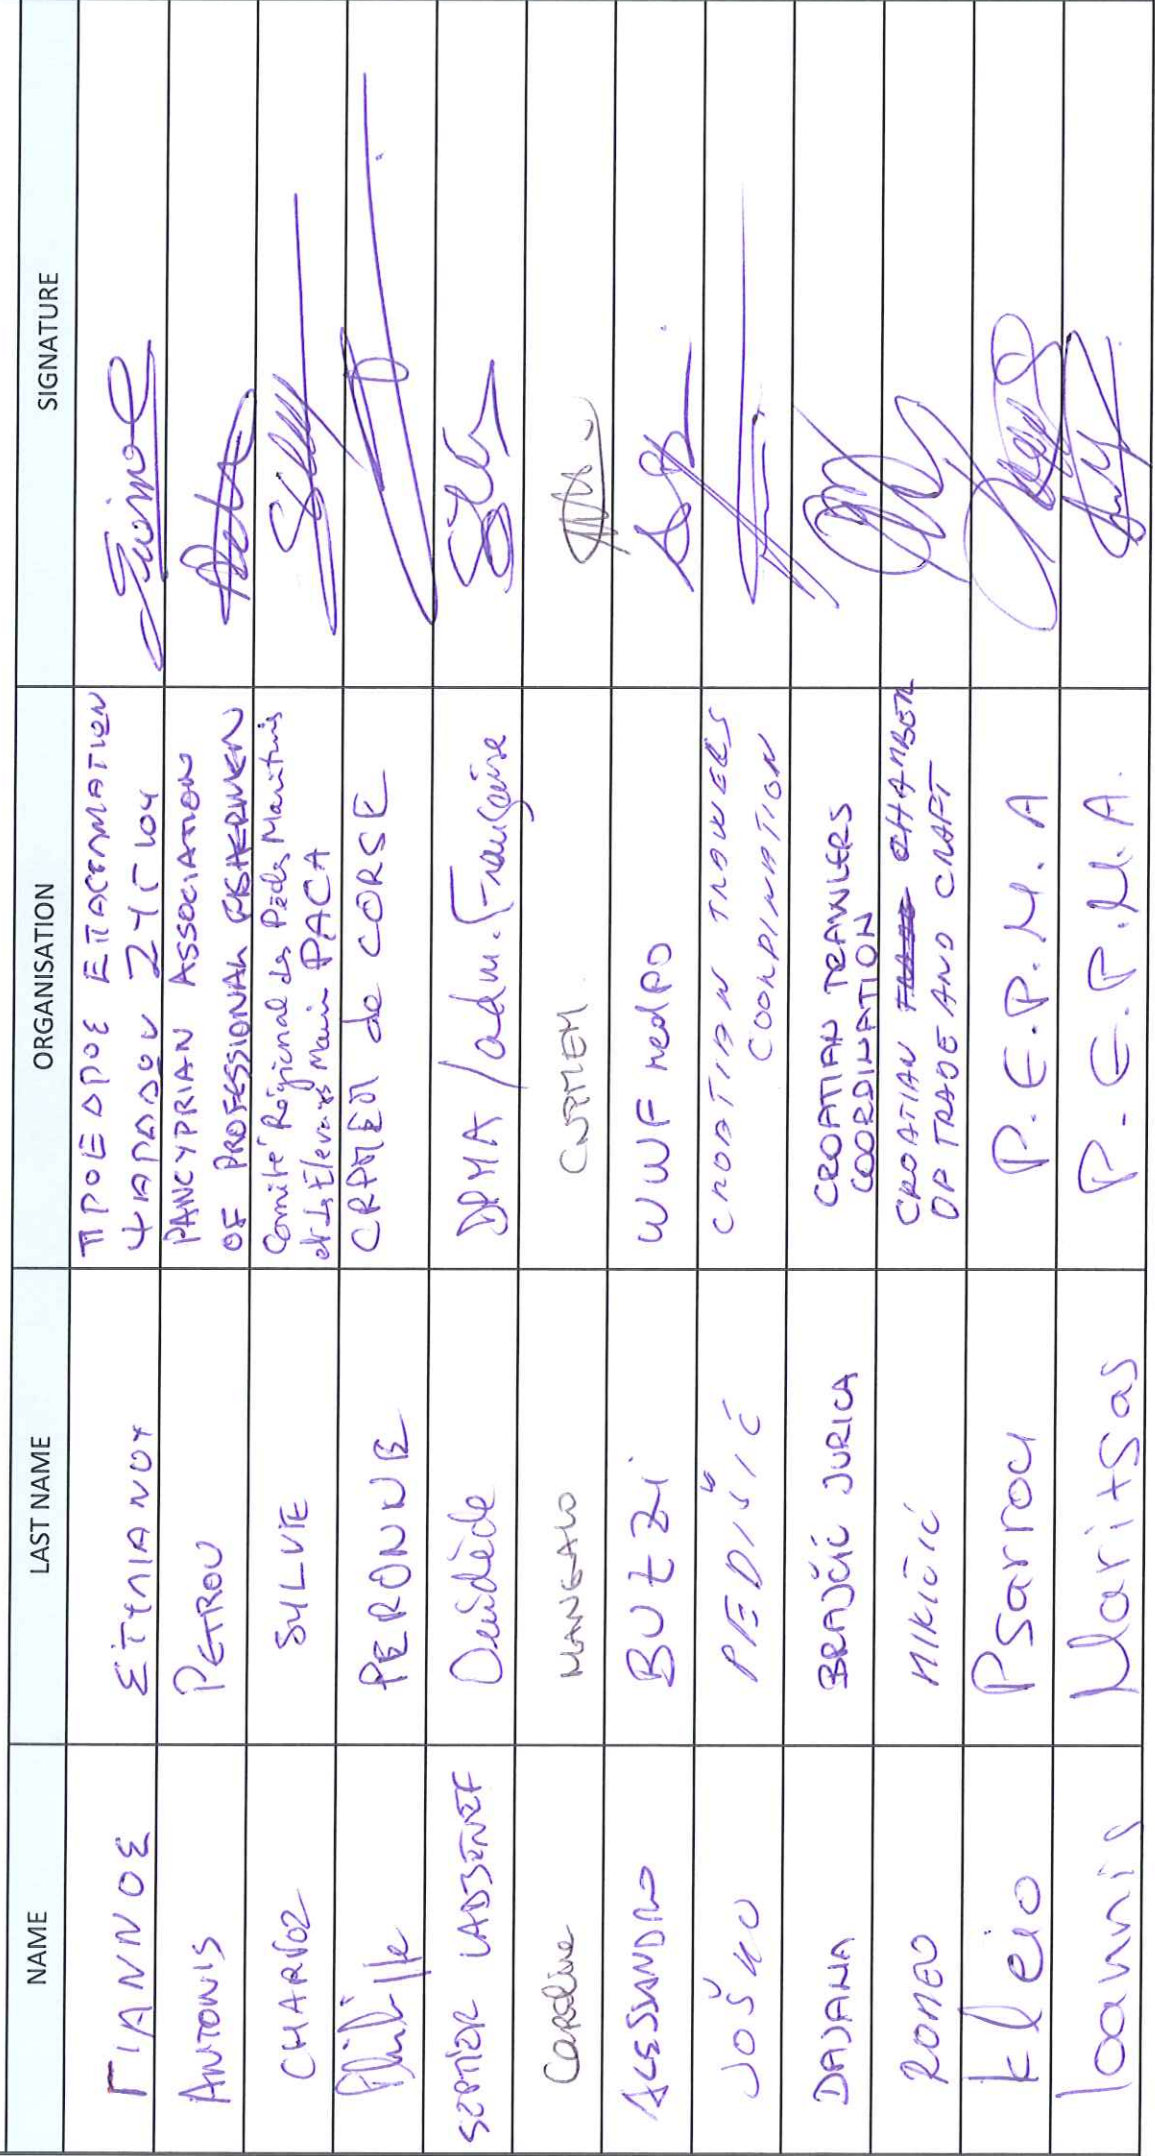 NAME LAST NAME ORGANISATION SIGNATURE
ΓΙΑΝΝΟΣ ΣΤΥΛΙΑΝΟΥ ΠΡΟΕΔΡΟΣ ΕΠΑΓΓΕΛΜΑΤΙΩΝ
ΨΑΡΑΔΩΝ ΖΥΓΙΟΥ
ANTONIS PETROU PANCYPRIAN ASSOCIATION
OF PROFESSIONAL FISHERMEN
CHARNOZ SYLVIE Comité Régional des Pêches Maritimes
et des Elevages Marins PACA
Philippe PERONNE CRPMEM de CORSE
DPMA / adm. Française
Caroline MANGALO CNPMEM
ALESSANDRO BUZZI WWF MedPO
JOŠKO PEDIŠIĆ CROATIAN TRAWLERS
COORDINATION
DAJANA BRAJČIĆ JURICA CROATIAN TRAWLERS
COORDINATION
ROMEO MIKIČIĆ CROATIAN CHAMBER
OF TRADE AND CRAFT
Kleio Psarrou P.E.P.M.A
Ioannis Maritsas P.E.P.M.A.